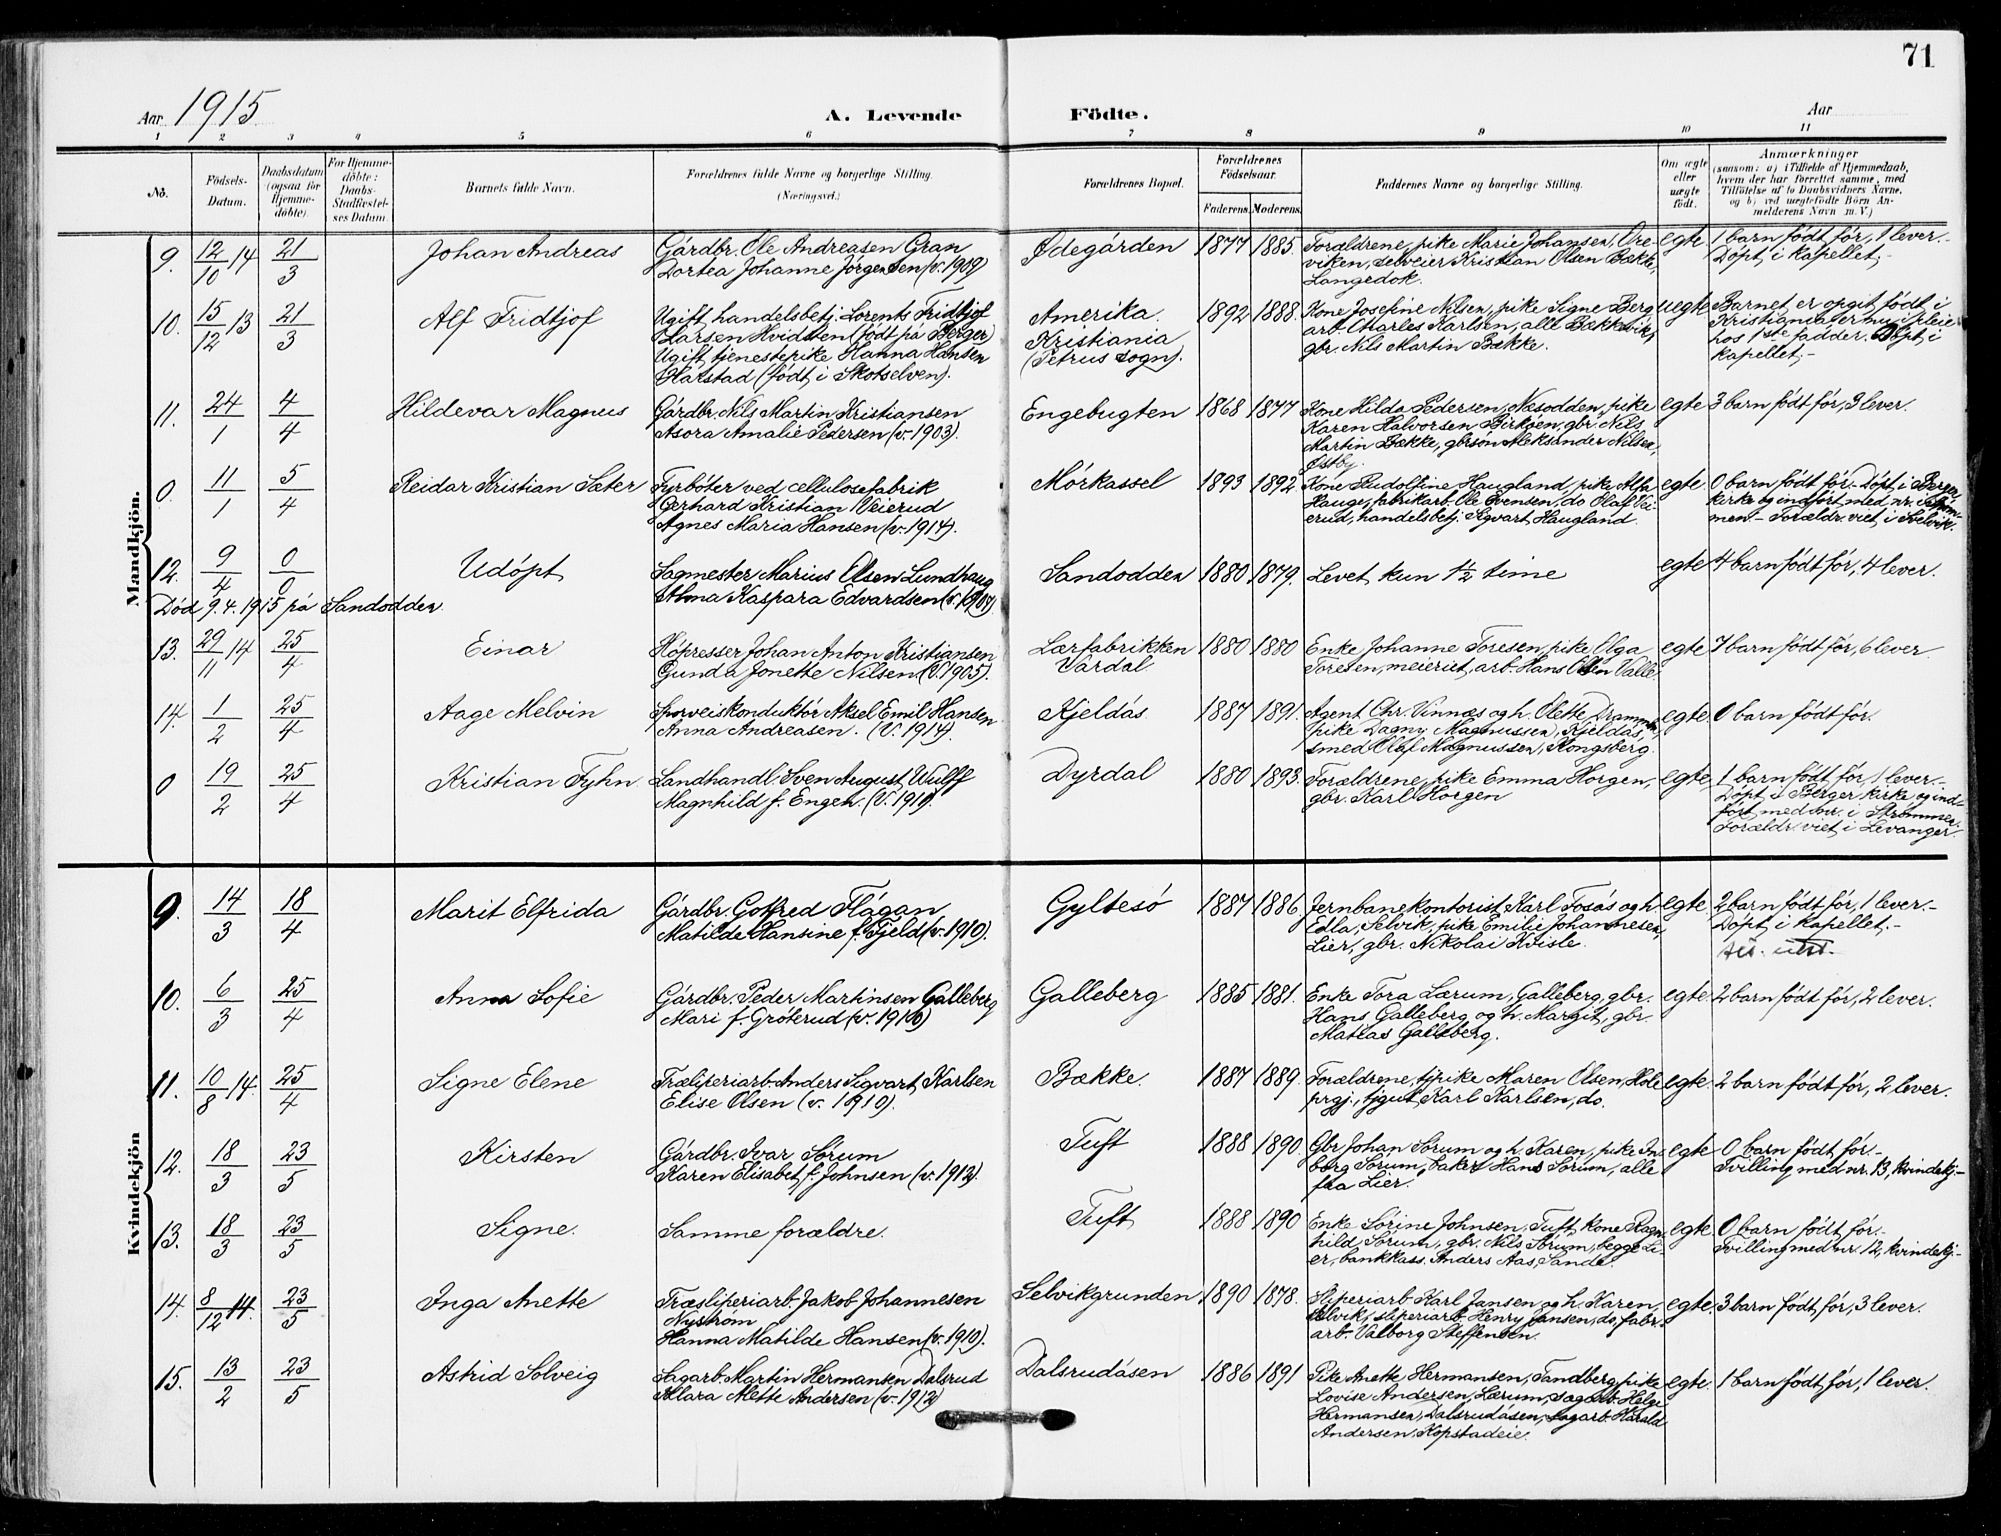 71
Aar 1915 A. Levende Födte. Aar
1 2 3 4 5 6 7 8 9 10 11
No.
Födsels-
Datum.
Daabsdatum
(ogsaa for
Hjemme-
döbte).
For Hjemme-
döbte:
Daabs-
Stadfæstel-
ses Datum.
Barnets fulde Navn.
Forældrenes fulde Navne og borgerlige Stilling.
(Næringsvei.)
Forældrenes Bopæl.
Forældrenes
Födselsaar.
Faderens. Moderens.
Faddernes Navne og borgerlige Stilling.
Om ægte
eller
uægte
födt.
Anmærkninger
(saasom: a) i Tilfælde af Hjemmedaab,
hvem der har forrettet samme, med
Tilföielse af to Daabsvidners Navne,
og b) ved uægtefödte Börn An-
melderens Navn m. V.)
Mandkjön.
9. 12/10 14 21/3 Johan Andreas
Gårdbr. Ole Andreasen Gran
Dortea Johanne Jørgensen (v. 1909)
Ødegården 1877 1885.
Forældrene, pike Marie Johansen, Øre-
viken, selveier Kristian Olsen Bække,
Langedok.
egte 1 barn født før, 1 lever.-
Døpt i kapellet.-
10. 15/12 13 21/3 Alf Fridtjof
Ugift handelsbetj. Lorents Fridtjof
Larsen Hvidsten (født på Berger)
Ugift tjenestepike Hanna Hansen
Harstad (født i Skotselven).
Amerika.
Kristiania
(Petrus sogn).
1892 1888.
Kone Josefine Nilsen, pike Signe Berg
arb. Charles Karlsen, alle Bækkevik,
gbr. Nils Martin Bække.
uegte Barnet er opgit født i
Kristiania er nu i pleie
hos 1ste fadder. Døpt i
kapellet.-
11. 24/1 4/4 Hildevar Magnus
Gårdbr. Nils Martin Kristiansen
Asora Amalie Pedersen (v. 1903).
Engebugten 1868 1877
Kone Hilda Pedersen, Næsodden, pike
Karen Halvorsen Birkøen, gbr. Nils
Martin Bække, gbrsøn Aleksander Nilsen,
Østby.
egte 3 barn født før, 3 lever.
0. 11/1 5/4 Reidar Kristian Sæter
Fyrbøter ved cellulosefabrik
Gerhard Kristian Veierud
Agnes Maria Hansen (v. 1914).
Mørkassel 1893 1892
Kone Rudolfine Haugland, pike Alfa
Hauge, fabrikarb. Ole Evensen, do Olaf Vei-
erud, handelsbetj. Sigvart Haugland.
egte. 0 barn født før.- Døpt i Berger
kirke og indført med nr. i Strøm-
men.- Forældr. viet i Svelvik.
12. 9/4 0/0 Udøpt
Sagmester Marius Olsen Lundhaug
Alma Kaspara Edvardsen (v. 1907)
Sandodden 1880 1879.
Levet kun 1 1/2 time
egte 4 barn født før, 4 lever.
Død 9.4.1915 på Sandodden.
13. 29/11 14 25/4 Einar
Høpresser Johan Anton Kristiansen
Gunda Jonette Nilsen (v. 1905).
Lærfabrikken
Vardal
1880 1880
Enke Johanne Toresen, pike Olga
Toresen, meieriet, arb. Hans Olsen Valle.
egte 7 barn født før, 6 lever.
14. 1/2 25/4 Aage Melvin
Sporveiskonduktør Aksel Emil Hansen
Anna Andreasen. (v. 1914).
Kjeldås 1887 1891.
Agent Chr. Vinnæs og h. Olette Drammen
pike Dagny Magnussen, Kjeldås,
smed Olaf Magnussen, Kongsberg.
egte. 0 barn født før.
0 19/2 25/4 Kristian Fyhn
Landhandl. Sven August Wulff
Magnhild f. Engen. (v. 1911).
Dyrdal 1880 1893.
Forældrene, pike Emma Horgen,
gbr. Karl Horgen
egte, 1 barn født før 1 lever.-
Døpt i Berger kirke og ind-
ført med nr. i Strømmen.
Forældr. viet i Levanger.
Kvindekjön
9. 14/3 18/4 Marit Elfrida
Gårdbr. Gotfred Flågan
Matilde Hansine f. Fjeld (v. 1910).
Gyltesø 1887 1886
Jernbanekontorist Karl Fosås og h.
Edla, Selvik, pike Emilie Johannesen,
Lier, gbr. Nikolai Kvisle.
egte 2 barn født før, 1 lever.-
Døpt i Kapellet.-
10. 6/3 25/4 Anna Sofie
Gårdbr. Peder Martinsen Galleberg
Mari f. Grøterud (v. 1910)
Galleberg 1885 1881.
Enke Tora Lærum, Galleberg, gbr.
Hans Galleberg og h. Margit, gbr.
Matias Galleberg.
egte. 2 barn født før, 2 lever.
11. 10/8 14. 25/4 Signe Elene
Træsliperiarb. Anders Sigvart Karlsen
Elise Olsen (v. 1910).
Bække. 1887 1889.
Forældrene, tjpike Maren Olsen, Hole
prgj., tjgut Karl Karlsen, do.
egte. 2 barn født før, 2 lever.
12. 18/3 23/5 Kirsten
Gårdbr. Ivar Sørum
Karen Elisabet f. Johnsen (v. 1912).
Tuft 1888 1890
Gbr. Johan Sørum og h. Karen, pike In-
borg Sørum, baker Hans Sørum, alle
fra Lier.
egte 0 barn født før.-
Tvilling med nr. 13, kvindekj-
13. 18/3 23/5 Signe.
Samme forældre.
Tuft 1888 1890
Enke Sørine Johnsen, Tuft, kone Ragn-
hild Sørum, gbr. Nils Sørum, begge Li-
er, bankkass. Anders Aas, Sande.
egte. 0 barn født før.-
Tvilling med nr. 12, kvindekj-
14. 8/12 14. 23/5 Inga Anette
Træsliperiarb. Jakob Johannesen
Nystrøm
Hanna Matilde Hansen (v. 1910).
Selvikgrunden 1890 1878.
Sliperiarb. Karl Jansen og h. Karen,
Selvik, sliperiarb. Henry Jansen, do, fabr.-
arb. Valborg Steffensen.
egte. 3 barn født før, 3 lever.
15. 13/2 23/5 Astrid Solveig
Sagarb. Martin Hermansen Dalsrud
Klara Alette Andersen (v. 1912)
Dalsrudåsen 1886 1891
Pike Anette Hermansen, Sandberg, pike
Lovise Andersen, Lærum, sagarb. Helge
Hermansen, Dalsrudåsen, sagarb. Harald
Andersen, Kopstadeie.
egte. 1 barn født før, 1 lever.